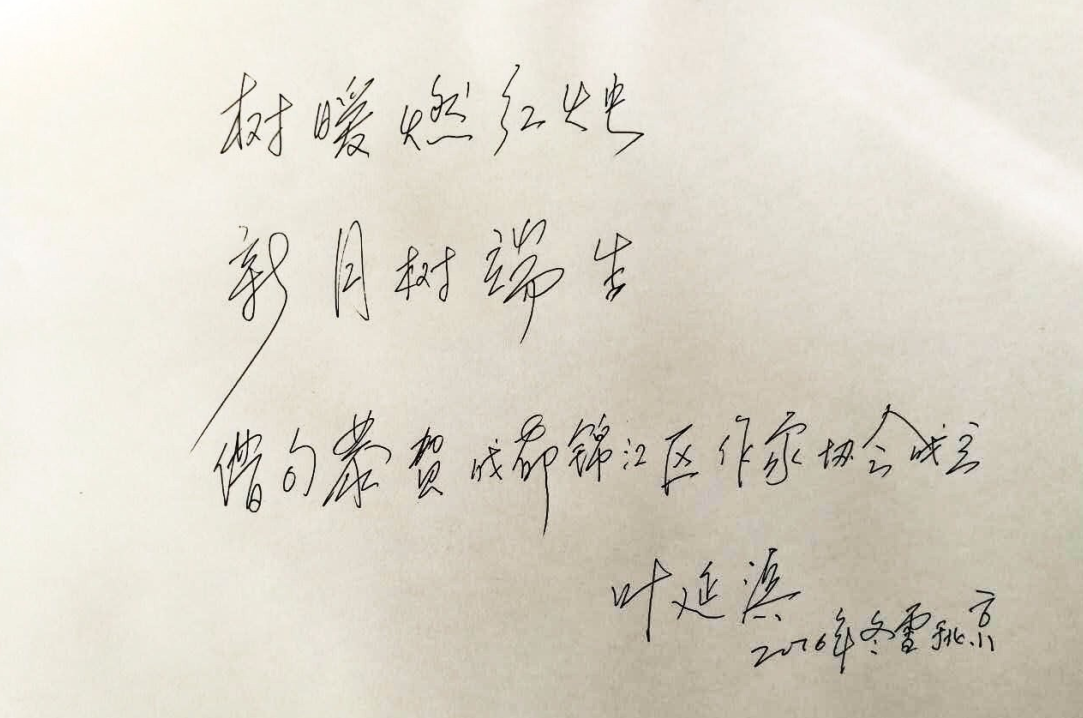 树暖燃红烛
新月树端生
借句恭贺成都锦江区作家协会成立
叶延滨
2016年冬雪于北京